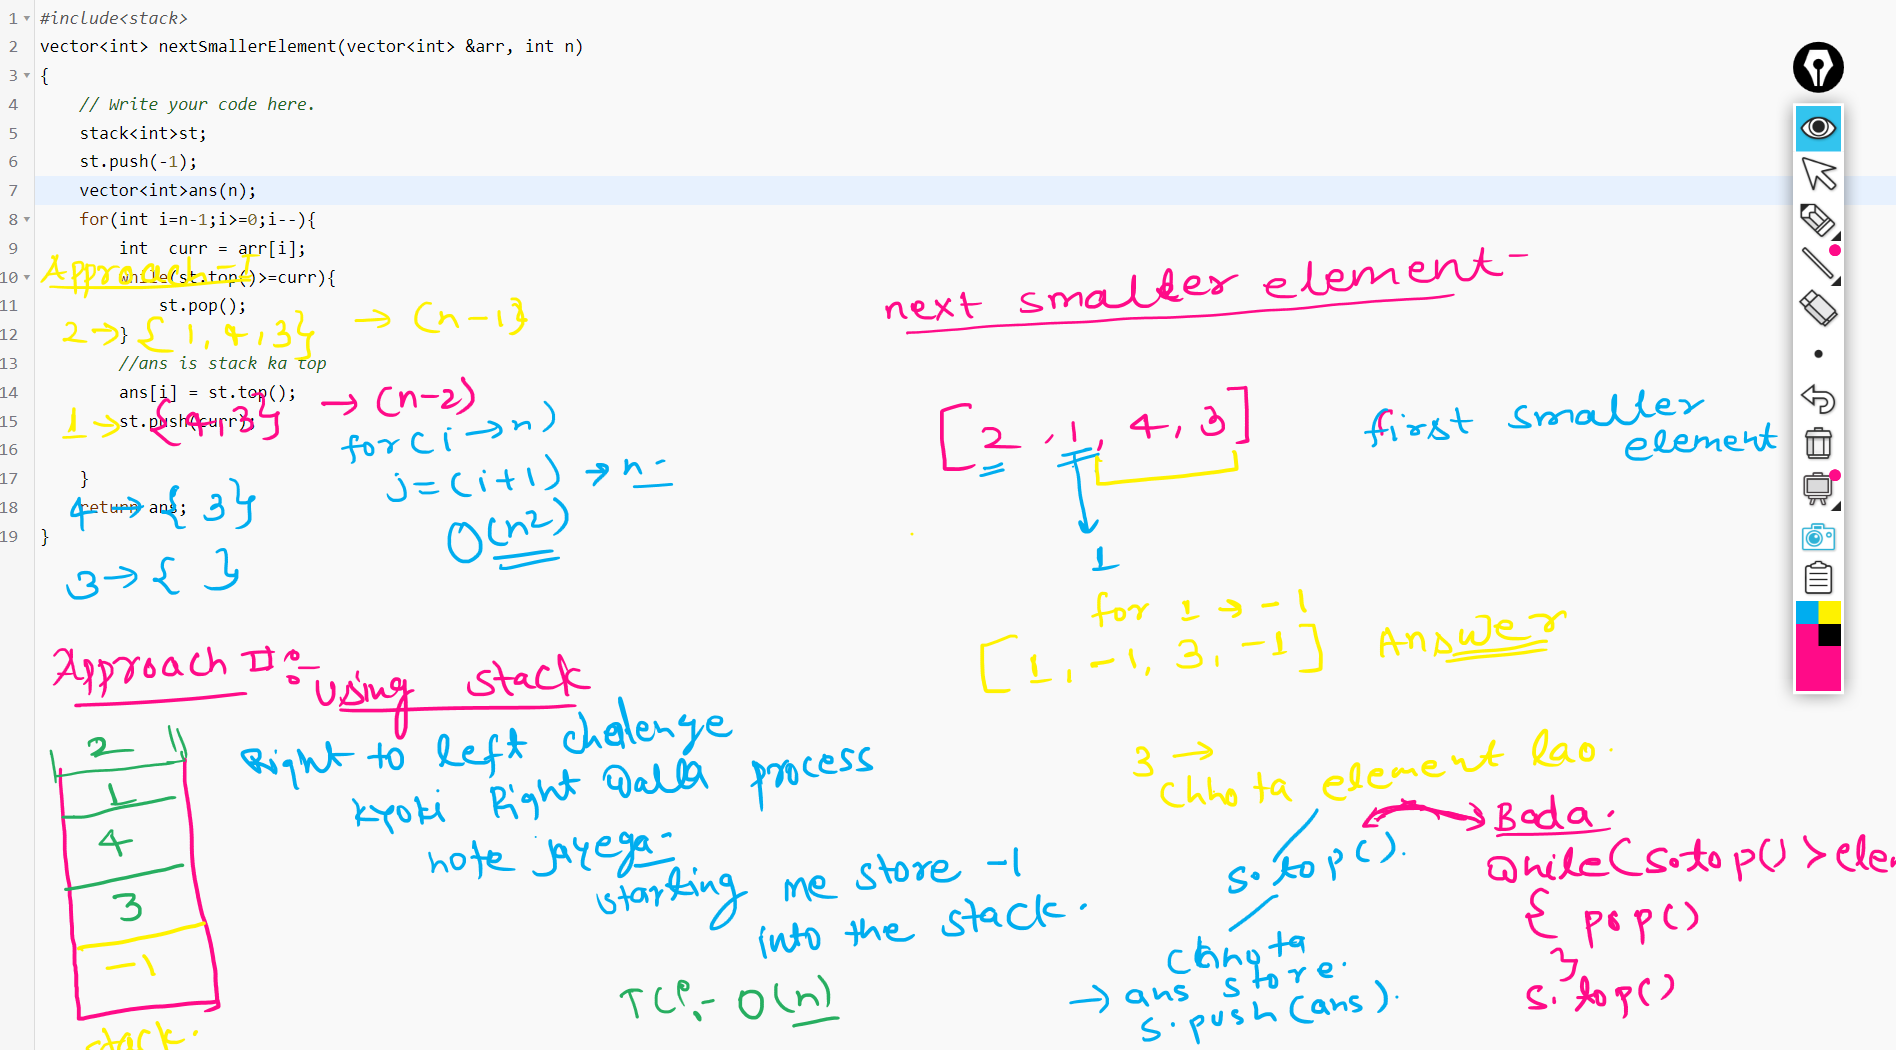 1 #include<stack>
2 vector<int> nextSmallerElement(vector<int> &arr, int n)
3 {
4 // Write your code here.
5 stack<int>st;
6 st.push(-1);
7 vector<int>ans(n);
8 for(int i=n-1;i>=0;i--){
9 int curr = arr[i];
10 while(st.top()>=curr){
11 st.pop();
12 }
13 //ans is stack ka top
14 ans[i] = st.top();
15 st.push(curr);
16
17 }
18 return ans;
19 }
Approach-I
2→{1,4,3} → (n-1)
1→{4,3} → (n-2)
for(i→n)
j=(i+1)→n-
O(n2)
4→{3}
3→{ }
next smaller element-
[2,1,4,3]
first smaller
element
1
for 1→-1
[1,-1,3,-1] Answer
Approach II:-
Using stack
2
1
4
3
-1
stack.
Right to left chalenge
kyoki Right walla process
hote jayega-
starting me store -1
into the stack.
TC:- O(n)
3→
Chhota element lao.
s.top().
Chhota
→ ans store.
s.push(ans).
Bada.
while(s.top()>ele
{ pop()
}
s.top()